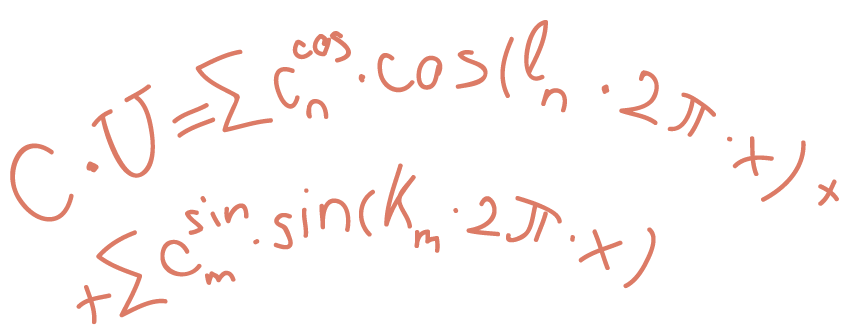 C·U=∑c_n^cos·cos(l_n·2π·x)+
+∑c_m^sin·sin(k_m·2π·x)